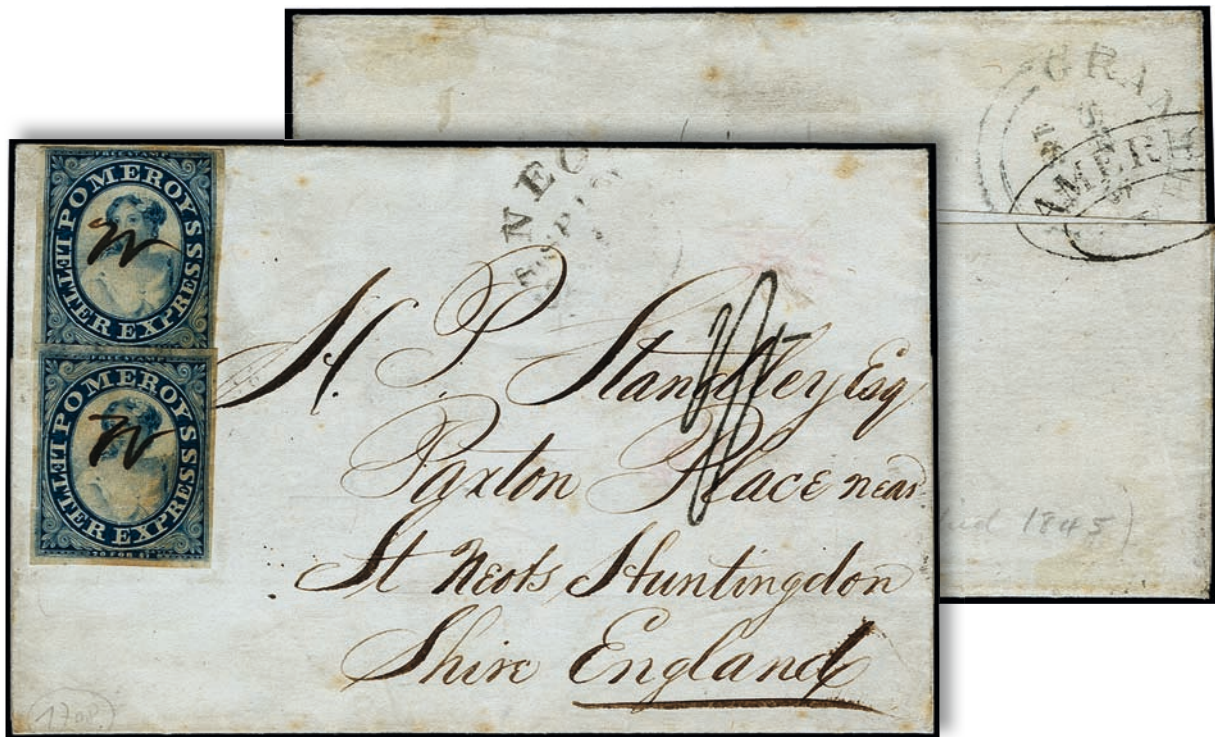 GRAN
AMERH
FREE STAMP
POMEROY'S LETTER EXPRESS
FREE STAMP
POMEROY'S LETTER EXPRESS
20 FOR $1
NEO
SEP
H. P. Standley Esq
Paxton Place near
St Neots Huntingdon
Shire England
1845)
1708